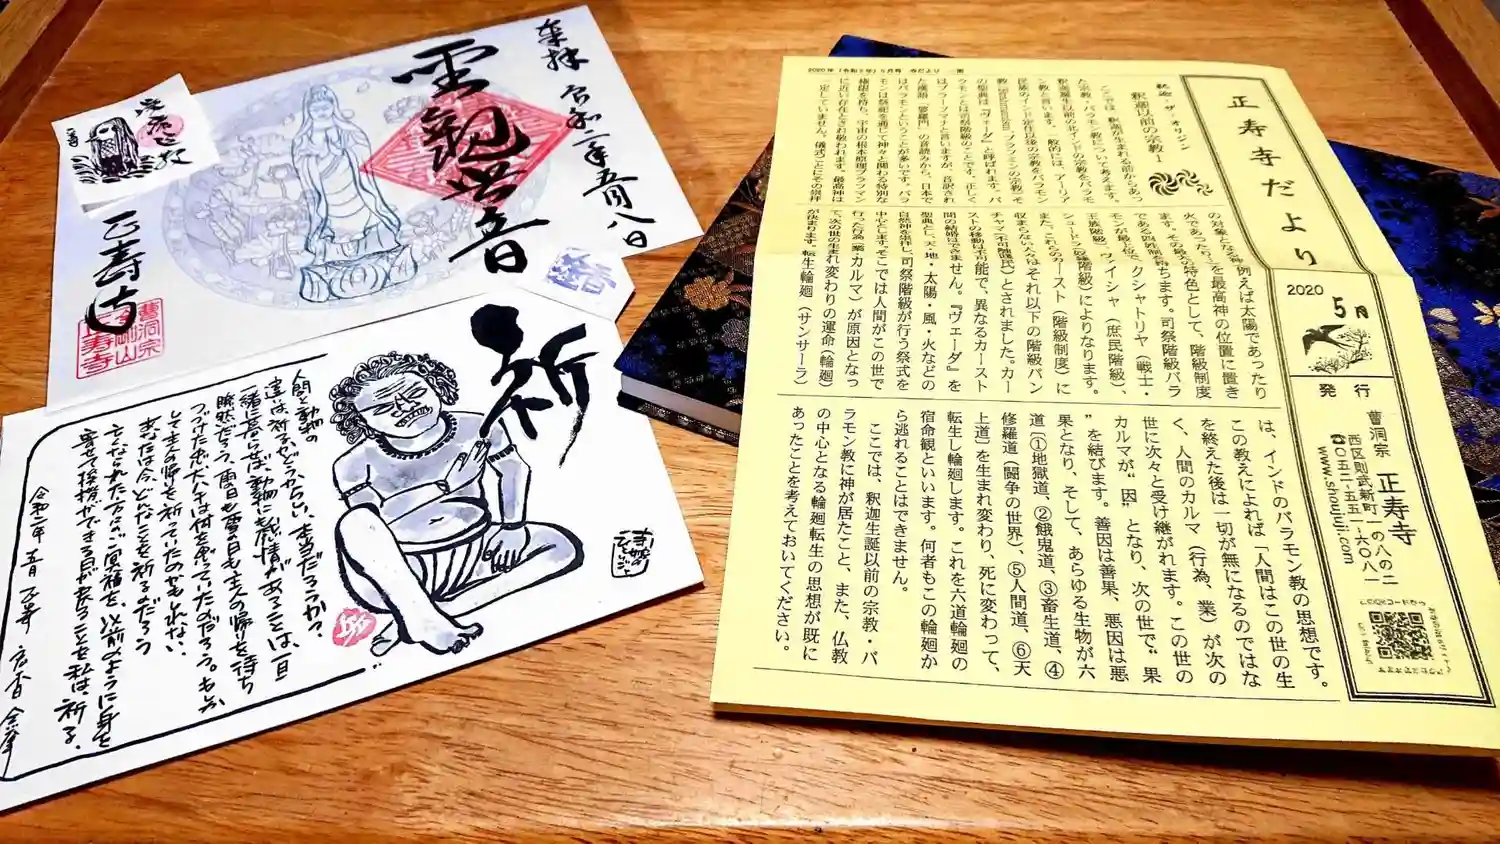 奉拝 令和二年五月八日
聖観世音
正寿寺
曹洞宗
正寿寺
疫病退散
祈
人間と動物の
違いは祈るかどうからしい、本当だろうか？
一緒に居らせば、動物にも感情があることは一目
瞭然だろう、雨の日も雪の日も主人の帰りを待ち
つづけた忠犬ハチは何を思っていたのだろう。もしか
して主人の帰りを祈っていたのかもれない、
あなたは今、どんなことを祈るのだろう
亡くなられた方にはご冥福を、以前のように身を
寄せて後援ができる日が来ることを私は、祈る、
令和二年 五月 正寿
2020年（令和2年）5月号 寺だより 一面
正寿寺だより
2020
5月
発行
曹洞宗 正寿寺
西区則武新町一の八の二
☎０５２-５５１-６０８１
www.shoujuji.com
釈迦・ザ・オリジン
釈迦以前の宗教Ⅰ
ここでは、釈迦が生まれる前からあっ
た宗教・バラモン教について考えます。
釈迦誕生以前の北インドの宗教をバラモ
ン教と言います。一般的には、アーリア
民族のインド定住以後の宗教をバラモン
教
の聖典は『ヴェーダ』と呼ばれます。バ
ラモンとは司祭階級のことです。正しく
はブラーフマナと言いますが、音訳され
た漢語「婆羅門」の音読みから、日本で
はバラモンということが多いです。バラ
モンは祭祀を通じて神々と関わる特別な
権限を持ち、宇宙の根本原理ブラフマン
に近い存在とされ敬われます。最高神は
一定していません。儀式ごとにその崇拝
の対象となる神
例えば太陽であったり
火であったり
を最高神の位置に置き
ます。その
特色として、階級制度
である四姓制
持ちます。司祭階級バラ
モンが最上位で、クシャトリヤ（戦士・
王族階級）、ヴァイシャ（庶民階級）、
シュードラ
階級）によりなります。
また、これらのカースト（階級制度）に
収まらない人々はそれ以下の階級パン
チャマ（不可触賤民）とされました。カー
ストの移動は不可能で、異なるカースト
間の結婚はできません。『ヴェーダ』を
聖典とし、天・地・太陽・風・火などの
自然神を崇拝し、司祭階級が行う祭式を
中心とします。そこでは人間がこの世で
行った行為（業・カルマ）が原因となっ
て、次の世の生まれ変わりの運命（輪廻）
が決まります。転生輪廻（サンサーラ）
は、インドのバラモン教の思想です。
この教えによれば「人間はこの世の生
を終えた後は一切が無になるのではな
く、人間のカルマ（行為、業）が次の
世に次々と受け継がれます。この世の
カルマが“因”となり、次の世で“果
”を結びます。善因は善果、悪因は悪
果となり、そして、あらゆる生物が六
道（①地獄道、②餓鬼道、③畜生道、④
修羅道（闘争の世界）、⑤人間道、⑥天
上道）を生まれ変わり、死に変わって、
転生し輪廻します。これを六道輪廻の
宿命観といいます。何者もこの輪廻か
ら逃れることはできません。
ここでは、釈迦生誕以前の宗教・バ
ラモン教に神が居たこと、また、仏教
の中心となる輪廻転生の思想が既に
あったことを考えておいてください。